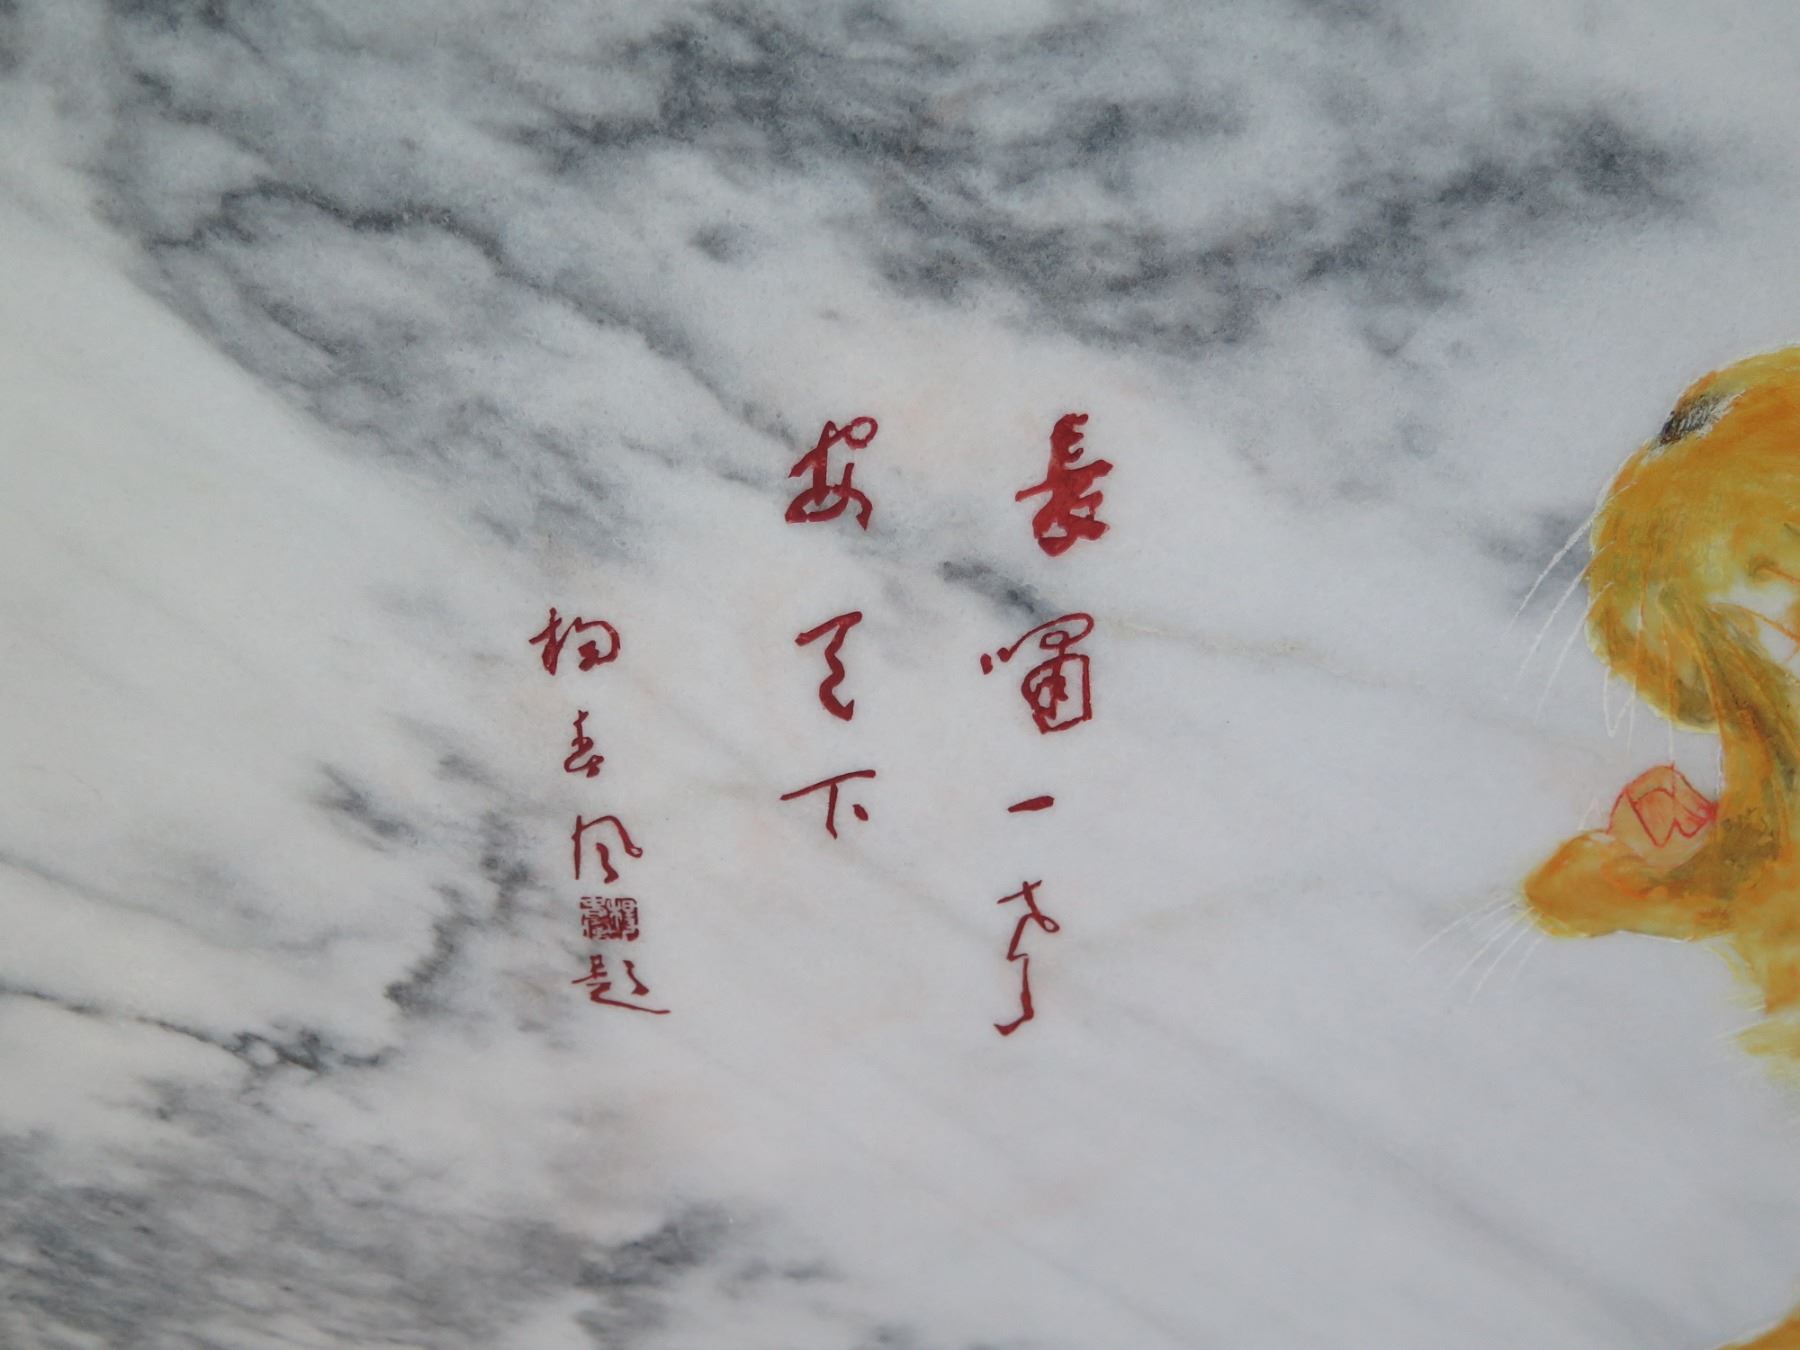 長嘯一聲
安天下
楊春風題